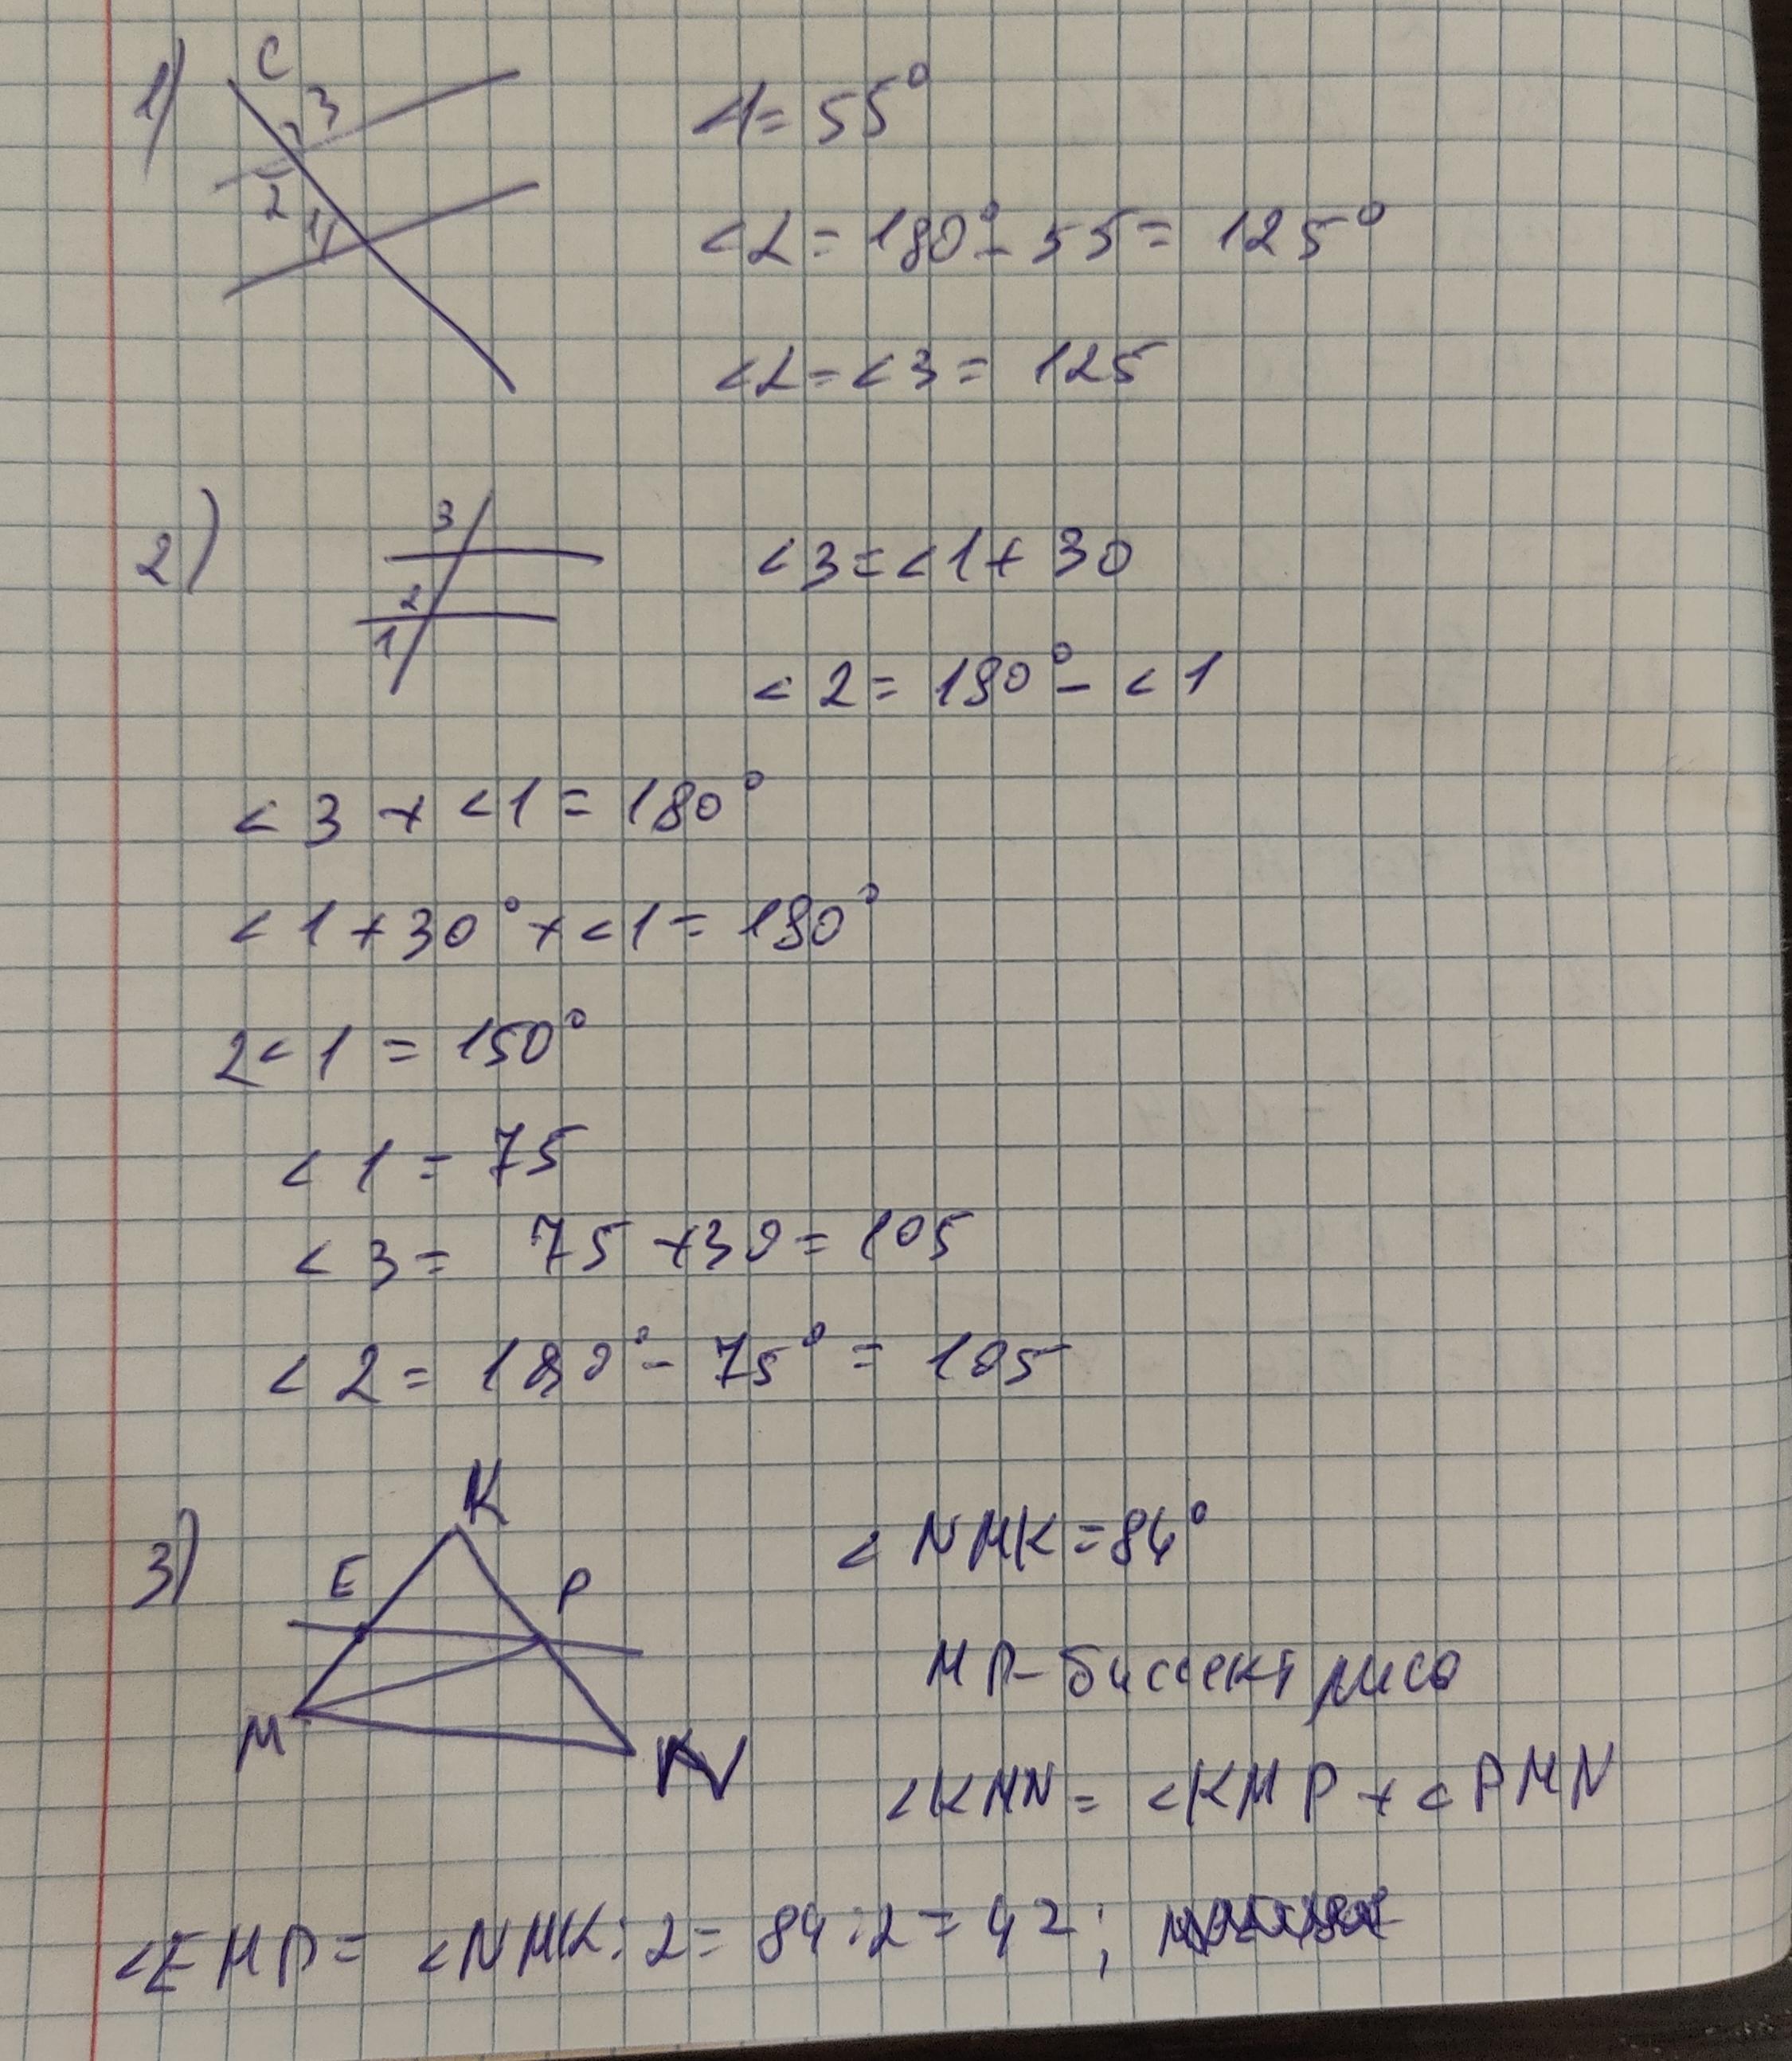 1)
C
3
2
1
∠1 = 55°
<2 = 180° - 55 = 125°
<2 = <3 = 125
2)
3
2
1
<3 = <1 + 30
<2 = 180° - <1
<3 + <1 = 180°
<1 + 30° + <1 = 180°
2<1 = 150°
<1 = 75
<3 = 75 + 30 = 105
<2 = 180° - 75° = 105
3)
K
E P
M N
<NMK = 84°
MP - биссектриса
<KMN = <KMP + <PMN
<EMP = <NMK : 2 = 84 : 2 = 42 ;